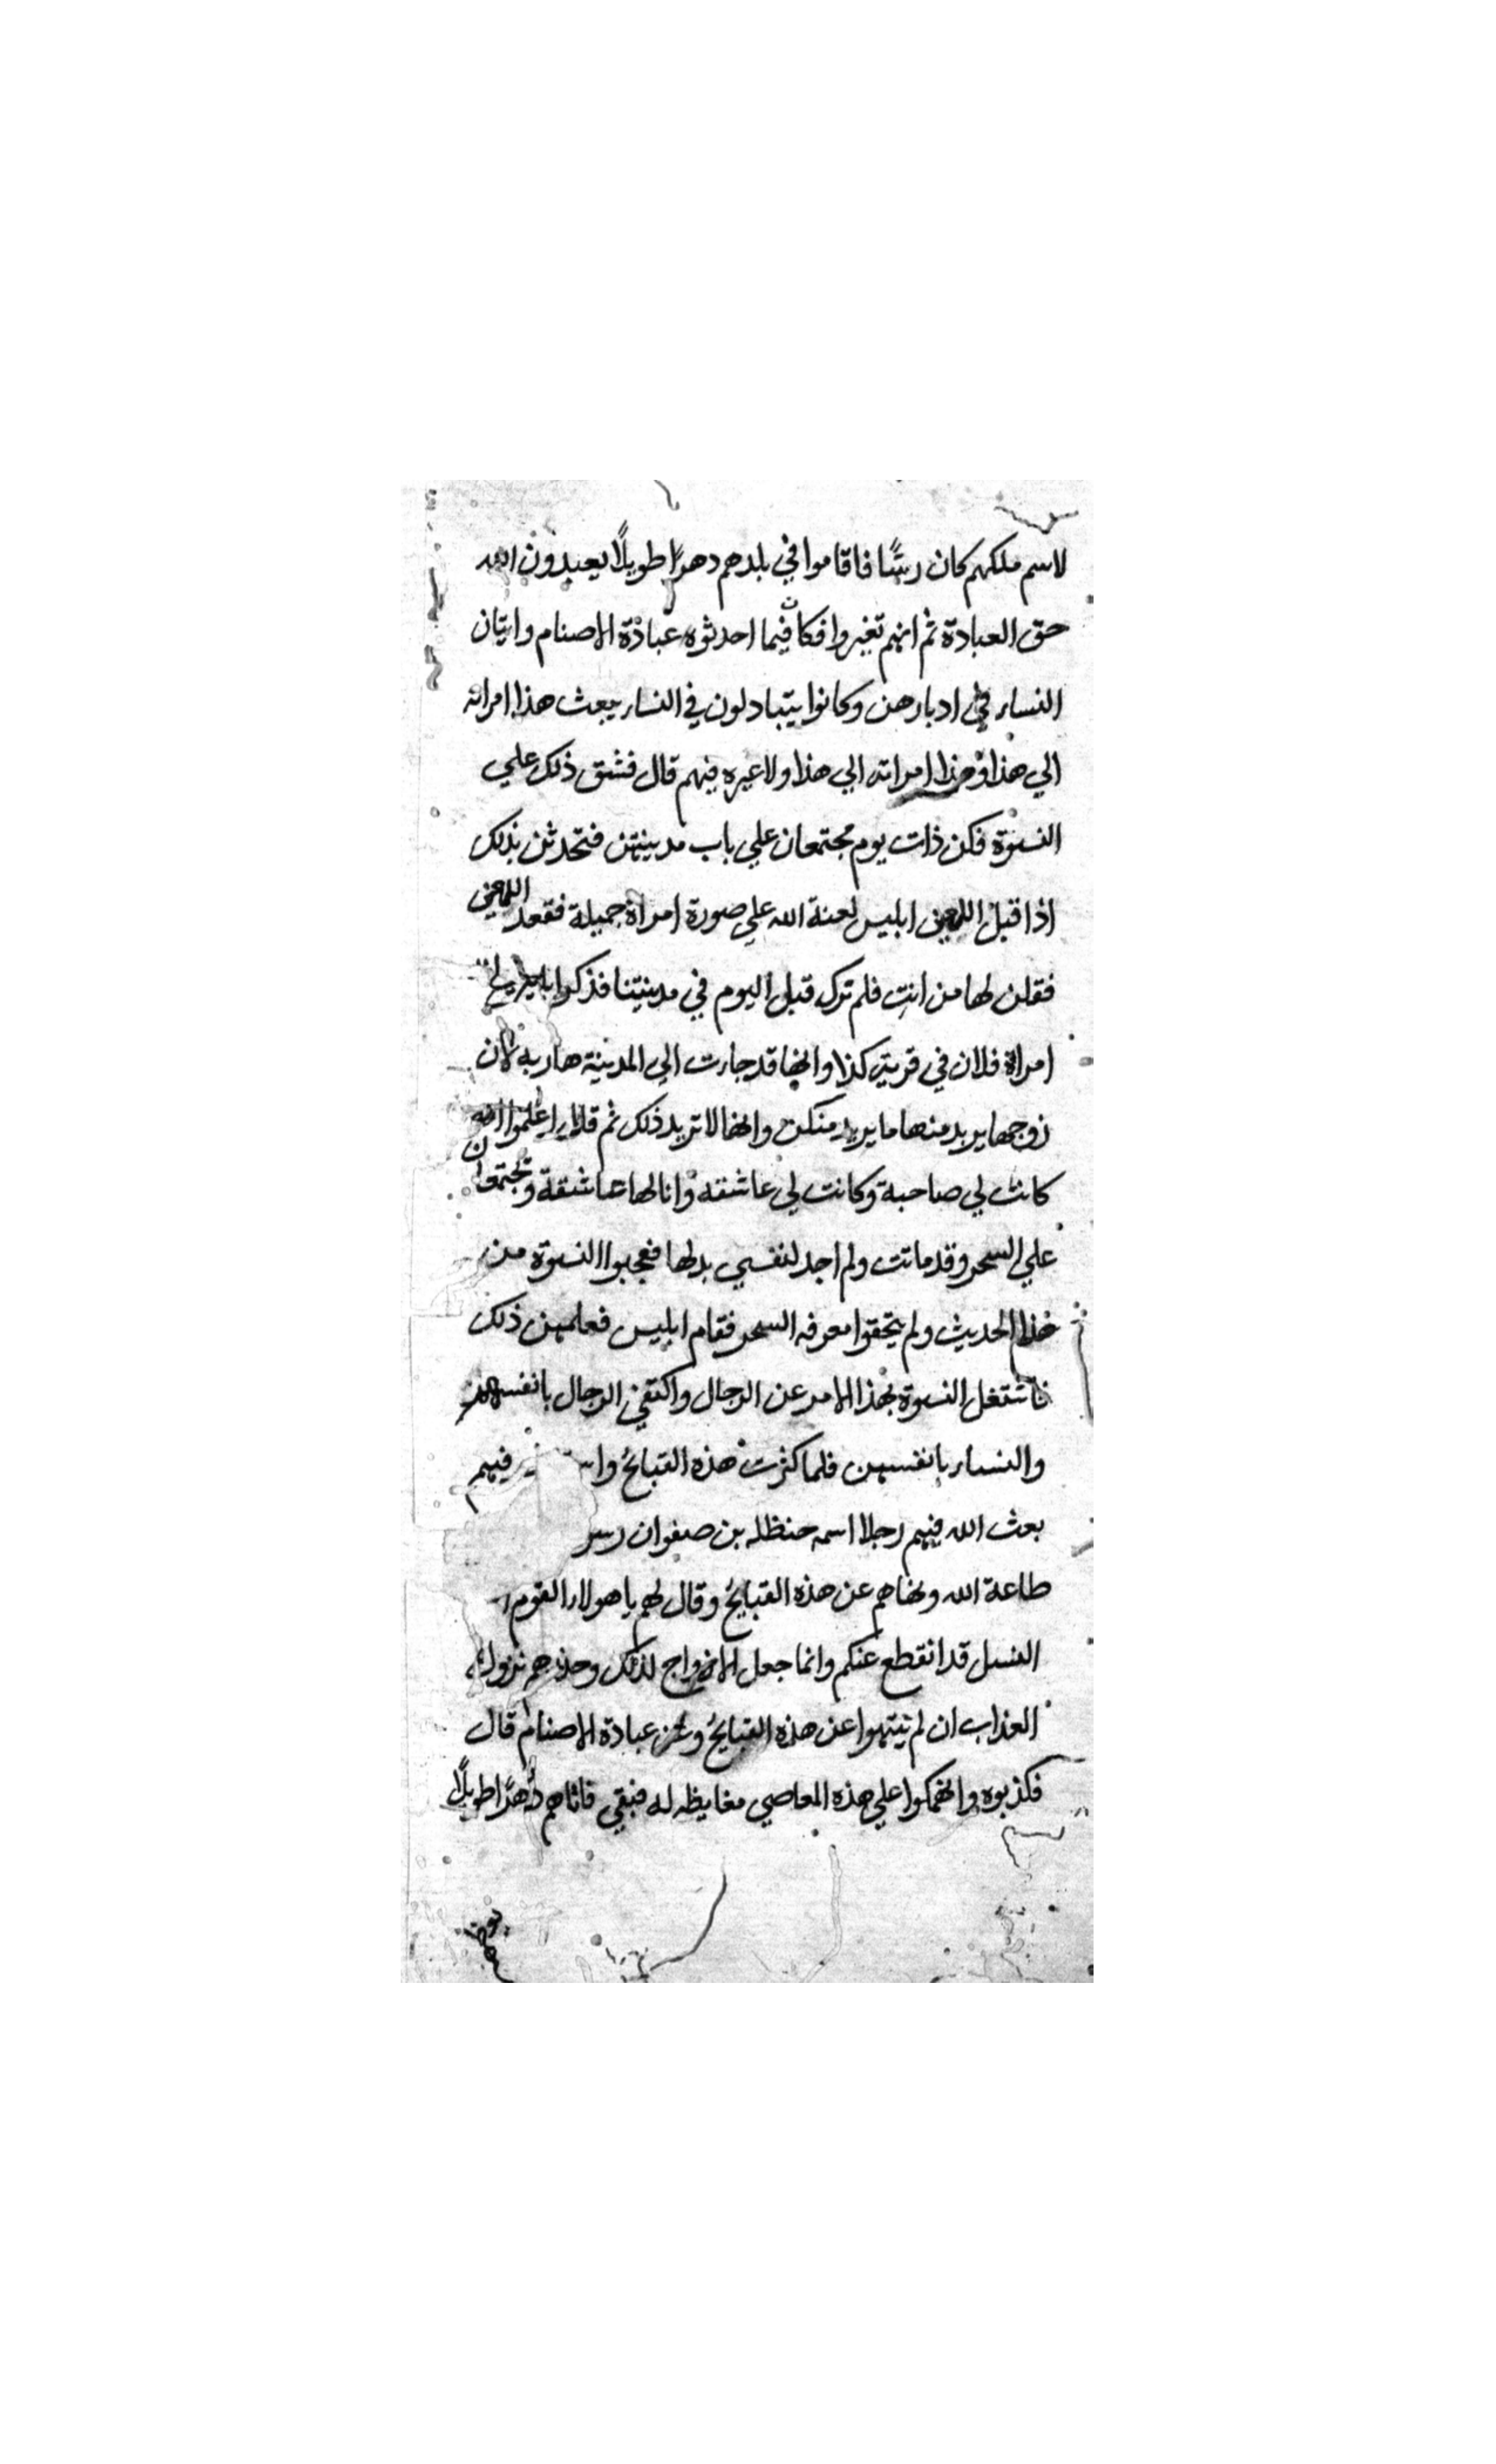 لاسم ملكهم كان رسًا فاقاموا في بلدهم دهرًا طويلًا يعبدون الله
حق العبادة ثم انهم تغيروا فكان فيما احدثوه عبادة الاصنام واتيان
النساء في ادبارهن وكانوا يتبادلون في النساء يبعث هذا امراته
الي هذا وهذا امراته الي هذا ولا غيره فيهم قال فشق ذلك علي
النسوة فكن ذات يوم مجتمعان علي باب مدينتهن فتحدثن بذلك
اذا قبل اللعين ابليس لعنة الله علي صورة امراة جميلة فقعد اللعين
فقلن لها من انت فلم ترك قبل اليوم في مدينتنا فذكر ابليس
امراة فلان في قرية كذا وانها قد جاءت الي المدينة هاربه لان
زوجها يريد منها ما يريد منكن وانها لا تريد ذلك ثم قال اعلموا انه
كانت لي صاحبة وكانت لي عاشقه وانا لها عاشقة وتجتمعان
علي السحر وقد ماتت ولم اجد لنفسي بدلها فعجبوا النسوة من
هذا الحديث ولم يتحققوا معرفه السحر فقام ابليس فعلمهن ذلك
فاشتغل النسوة بهذا الامر عن الرجال واكتفي الرجال بانفسهم
والنساء بانفسهن فلما كثرت هذه القبائح فيهم
بعث الله فيهم رجلا اسمه حنظله بن صفوان
طاعة الله ونهاهم عن هذه القبايح وقال لهم يا هولاء القوم
النسل قد انقطع عنكم وانما جعل الازواج لذلك وحذرهم نزول
العذاب ان لم ينتهوا عن هذه القبايح وعن عبادة الاصنام قال
فكذبوه وانهمكوا علي هذه المعاصي مغايظه له فبقي فاتاهم دهرًا طويلًا